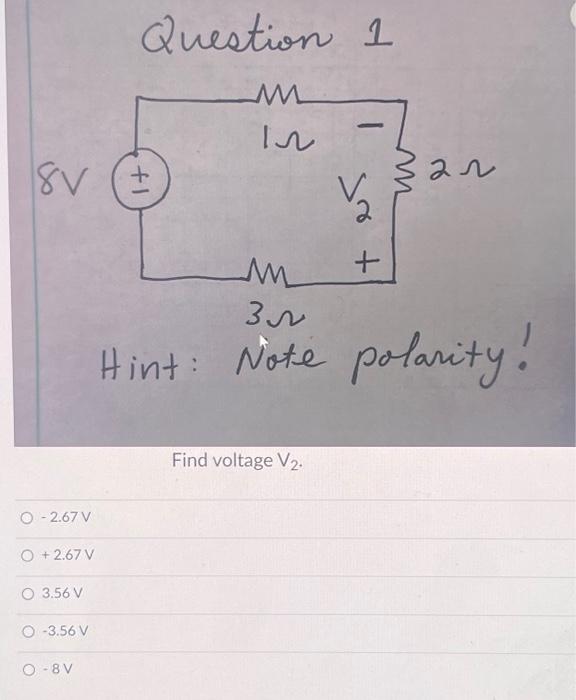 Question 1
1Ω
8V
+
-
-
V₂
+
2Ω
3Ω
Hint: Note polarity!
Find voltage V₂.
- 2.67 V
+ 2.67 V
3.56 V
-3.56 V
- 8 V